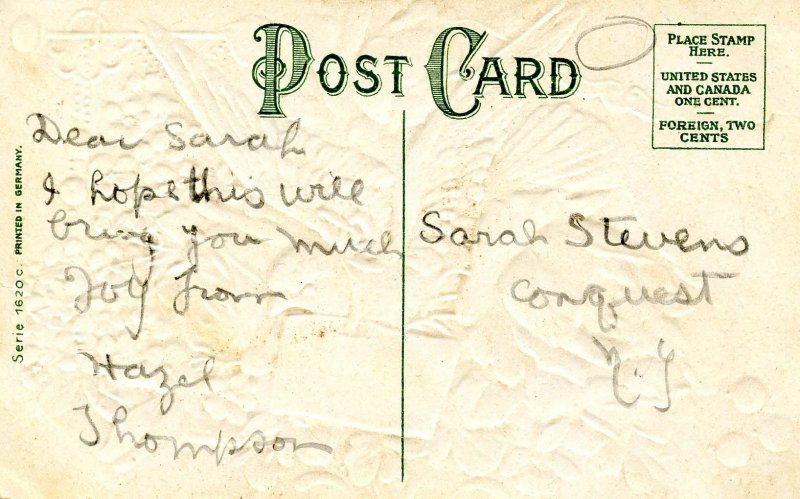 POST CARD
PLACE STAMP
HERE.
UNITED STATES
AND CANADA
ONE CENT.
FOREIGN, TWO
CENTS
Dear Sarah
I hope this will
bring you much
Joy from
Hazel
Thompson
Sarah Stevens
Conquest
N.Y
Serie 1620 c. PRINTED IN GERMANY.